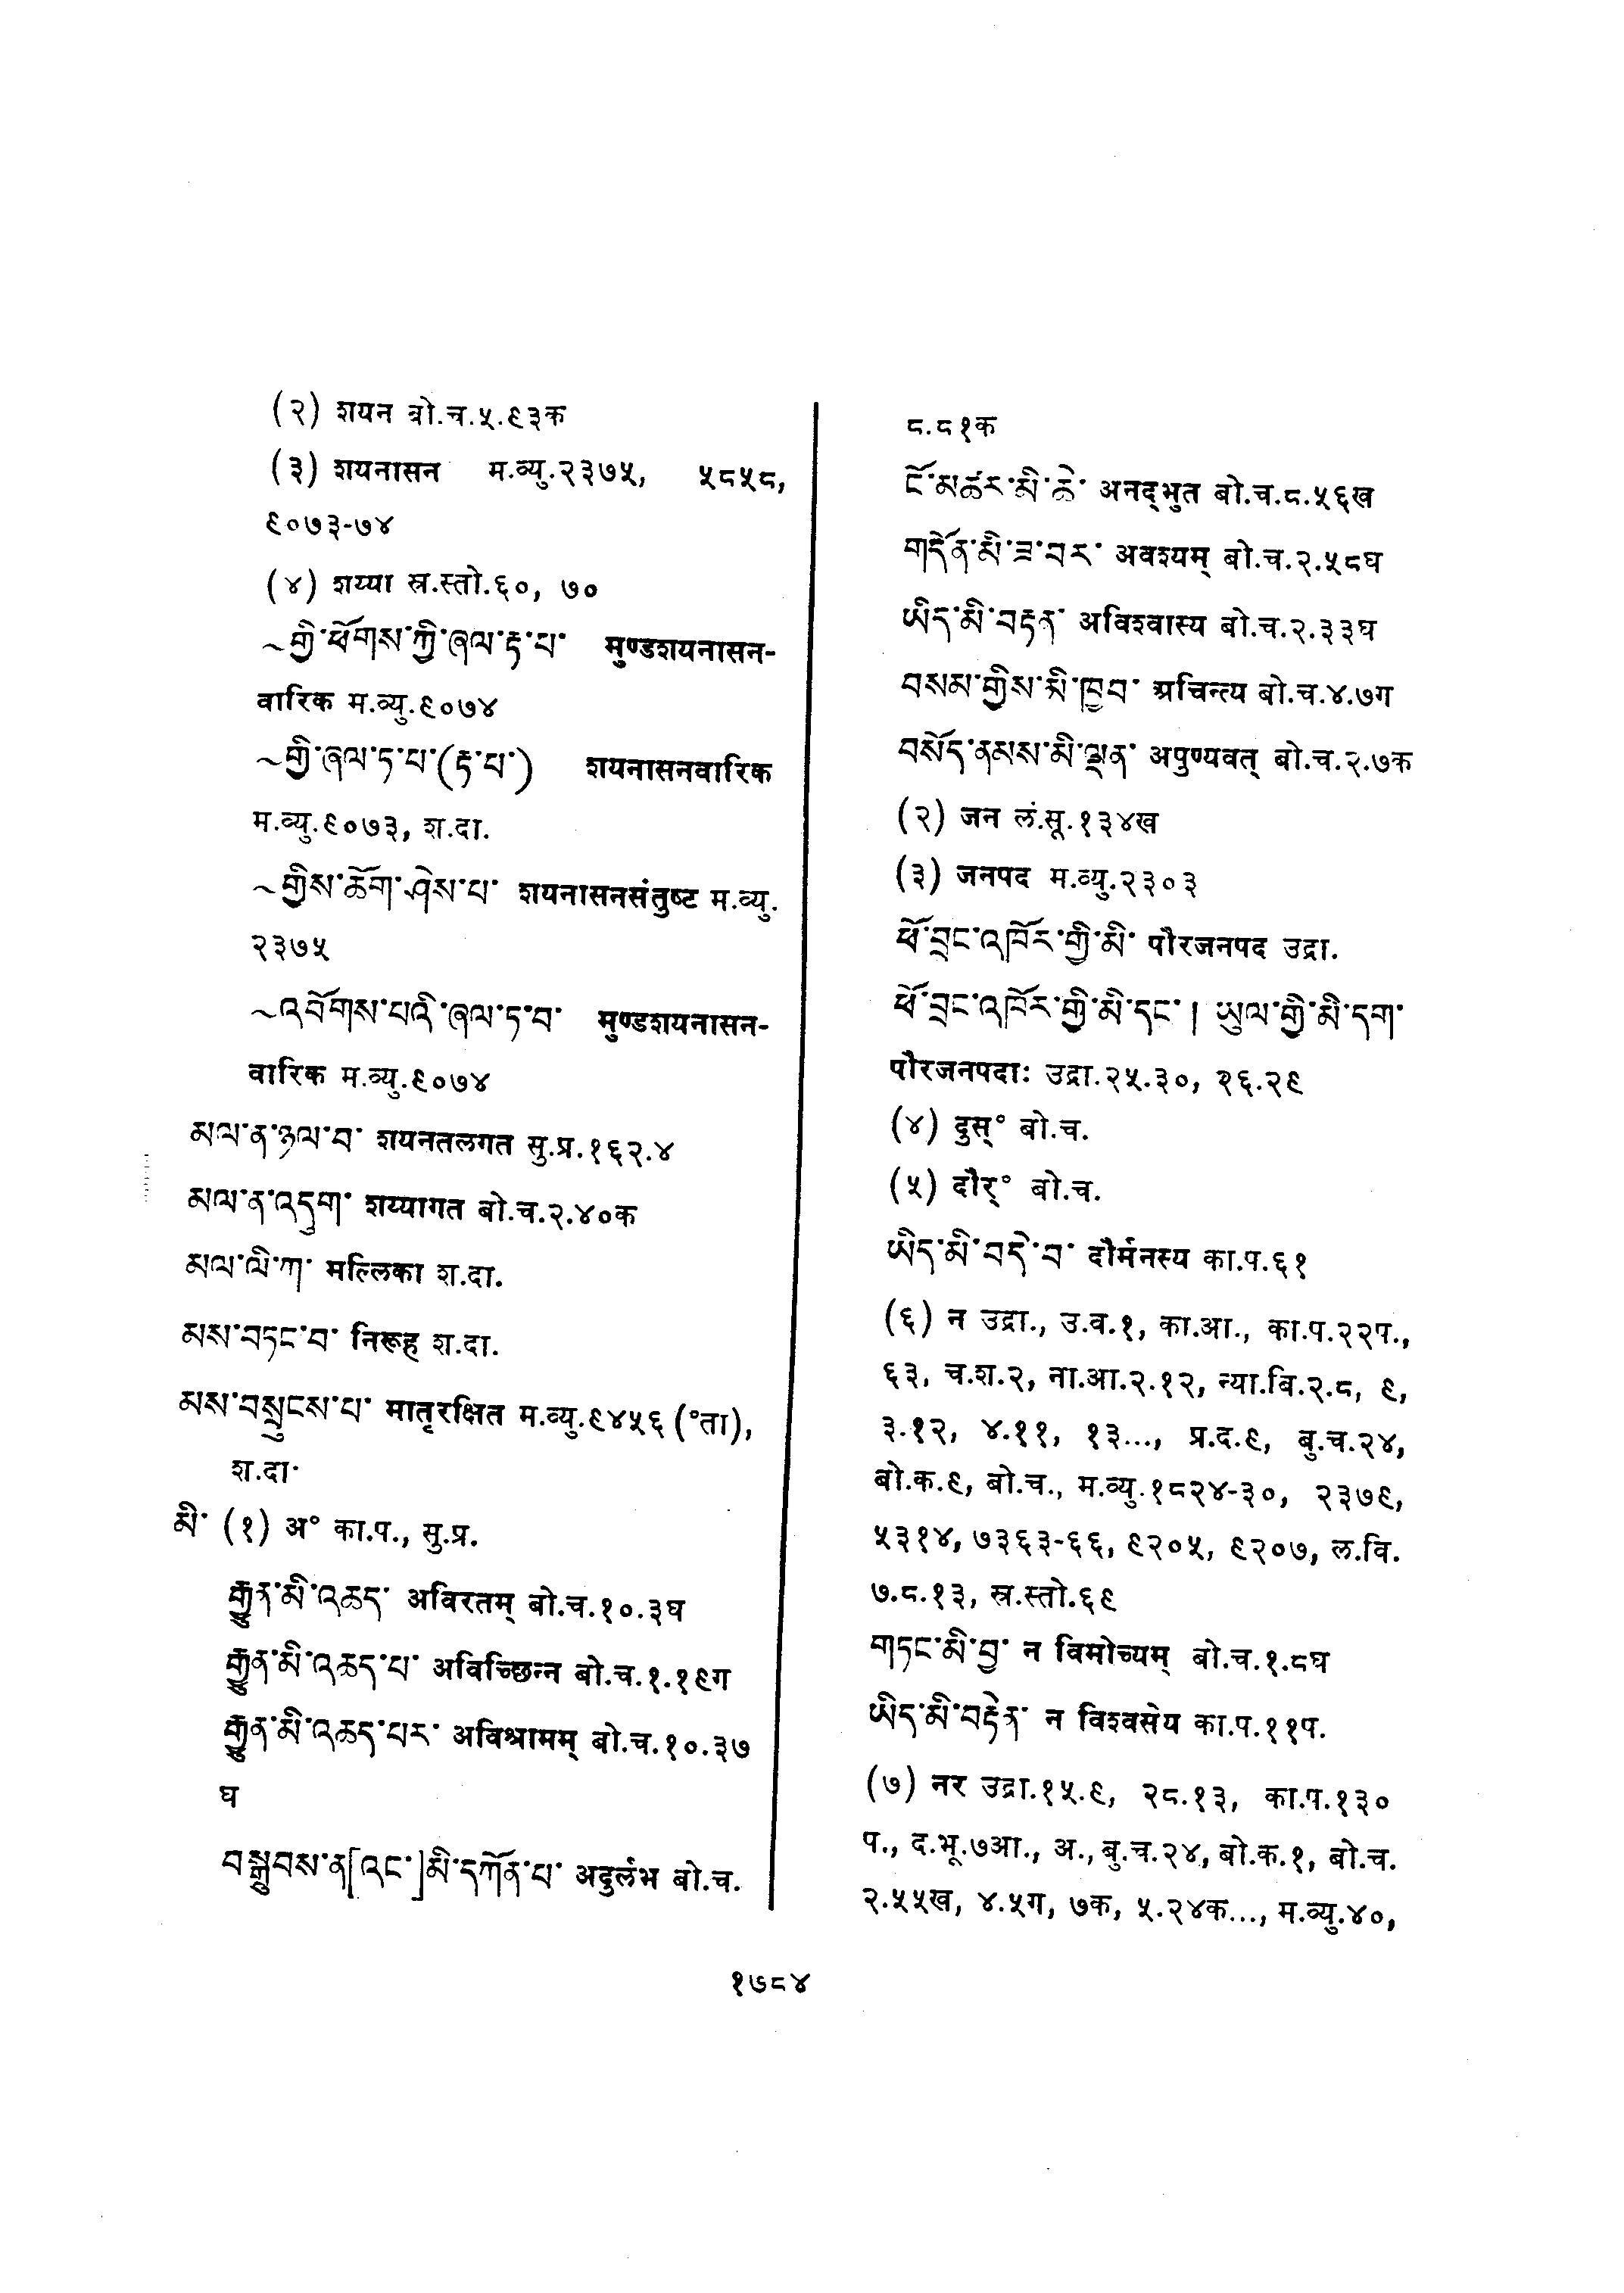 (२) शयन बो.च.५.९३क
(३) शयनासन म.व्यु.२३७५, ५८५८,
९०७३-७४
(४) शय्या स्र.स्तो.६०, ७०
~གྱི་ཕོགས་ཀྱི་ཞལ་ཏ་པ་ मुण्डशयनासन-
वारिक म.व्यु.९०७४
~གྱི་ཞལ་ཏ་པ་(ཏ་པ་) शयनासनवारिक
म.व्यु.९०७३, श.दा.
~གྱིས་ཆོག་ཤེས་པ་ शयनासनसंतुष्ट म.व्यु.
२३७५
~འབོགས་པའི་ཞལ་ཏ་བ་ मुण्डशयनासन-
वारिक म.व्यु.९०७४
མལ་ན་ཉལ་བ་ शयनतलगत सु.प्र.१६२.४
མལ་ན་འདུག་ शय्यागत बो.च.२.४०क
མལ་ལི་ཀ་ मल्लिका श.दा.
མས་བཏང་བ་ निरूह श.दा.
མས་བསྲུངས་པ་ मातृरक्षित म.व्यु.९४५६ (°ता),
श.दा.
མི་ (१) अ° का.प., सु.प्र.
རྒྱུན་མི་འཆད་ अविरतम् बो.च.१०.३घ
རྒྱུན་མི་འཆད་པ་ अविच्छिन्न बो.च.१.१९ग
རྒྱུན་མི་འཆད་པར་ अविश्रामम् बो.च.१०.३७
घ
བསྒྲུབས་ན[འང་]མི་དཀོན་པ་ अदुर्लभ बो.च.
८.८१क
ངོ་མཚར་མི་ཆེ་ अनद्भुत बो.च.८.५६ख
གདོན་མི་ཟ་བར་ अवश्यम् बो.च.२.५८घ
ཡིད་མི་བརྟན་ अविश्वास्य बो.च.२.३३घ
བསམ་གྱིས་མི་ཁྱབ་ अचिन्त्य बो.च.४.७ग
བསོད་ནམས་མི་ལྡན་ अपुण्यवत् बो.च.२.७क
(२) जन लं.सू.१३४ख
(३) जनपद म.व्यु.२३०३
ཕོ་བྲང་འཁོར་གྱི་མི་ पौरजनपद उद्रा.
ཕོ་བྲང་འཁོར་གྱི་མི་དང་། ཡུལ་གྱི་མི་དག་
पौरजनपदाः उद्रा.२५.३०, २६.२९
(४) दुस्° बो.च.
(५) दौर्° बो.च.
ཡིད་མི་བདེ་བ་ दौर्मनस्य का.प.६१
(६) न उद्रा., उ.व.१, का.आ., का.प.२२प.,
६३, च.श.२, ना.आ.२.१२, न्या.बि.२.८, ९,
३.१२, ४.११, १३..., प्र.द.९, बु.च.२४,
बो.क.९, बो.च., म.व्यु.१८२४-३०, २३७९,
५३१४, ७३६३-६६, ९२०५, ९२०७, ल.वि.
७.८.१३, स्र.स्तो.६९
གཏང་མི་བྱ་ न विमोच्यम् बो.च.१.८घ
ཡིད་མི་བརྟེན་ न विश्वसेय का.प.११प.
(७) नर उद्रा.१५.९, २८.१३, का.प.१३०
प., द.भू.७आ., अ., बु.च.२४, बो.क.१, बो.च.
२.५५ख, ४.५ग, ७क, ५.२४क..., म.व्यु.४०,
१७८४